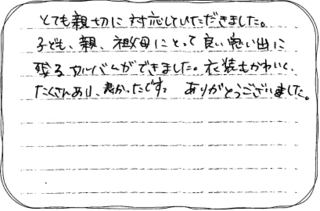 とても親切に対応していただきました。
子ども、親、祖父母にとって良い思い出に
残るアルバムができました。衣装もかわいく、
たくさんあり、良かったです。ありがとうございました。